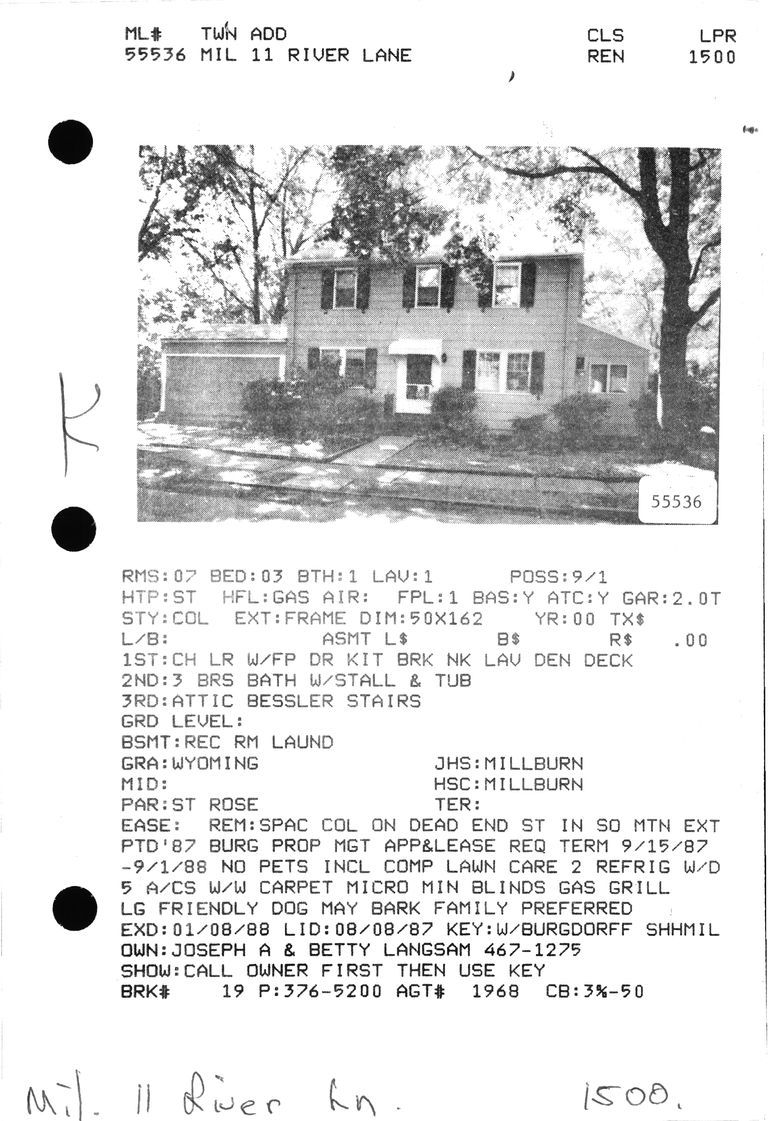 ML# TWN ADD CLS LPR
55536 MIL 11 RIVER LANE REN 1500
K
55536
RMS:07 BED:03 BTH:1 LAV:1 POSS:9/1
HTP:ST HFL:GAS AIR: FPL:1 BAS:Y ATC:Y GAR:2.0T
STY:COL EXT:FRAME DIM:50X162 YR:00 TX$
L/B: ASMT L$ B$ R$ .00
1ST:CH LR W/FP DR KIT BRK NK LAV DEN DECK
2ND:3 BRS BATH W/STALL & TUB
3RD:ATTIC BESSLER STAIRS
GRD LEVEL:
BSMT:REC RM LAUND
GRA:WYOMING JHS:MILLBURN
MID: HSC:MILLBURN
PAR:ST ROSE TER:
EASE: REM:SPAC COL ON DEAD END ST IN SO MTN EXT
PTD'87 BURG PROP MGT APP&LEASE REQ TERM 9/15/87
-9/1/88 NO PETS INCL COMP LAWN CARE 2 REFRIG W/D
5 A/CS W/W CARPET MICRO MIN BLINDS GAS GRILL
LG FRIENDLY DOG MAY BARK FAMILY PREFERRED
EXD:01/08/88 LID:08/08/87 KEY:W/BURGDORFF SHHMIL
OWN:JOSEPH A & BETTY LANGSAM 467-1275
SHOW:CALL OWNER FIRST THEN USE KEY
BRK# 19 P:376-5200 AGT# 1968 CB:3%-50
Mil. 11 River Ln. 1500.